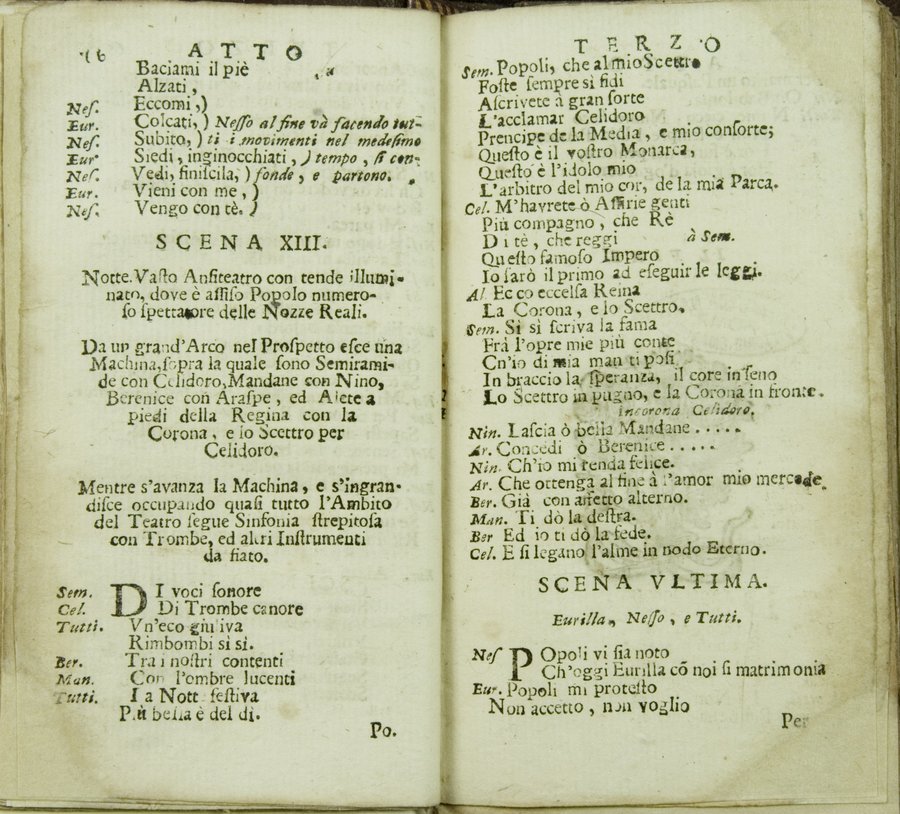 16 ATTO
Baciami il piè
Alzati,
Nes. Eccomi,)
Eur. Colcati, ) Nesso al fine và facendo tut-
Nes. Subito, ) ti i movimenti nel medesimo
Eur Siedi, inginocchiati, ) tempo, si con-
Nes. Vedi, finiscila, ) fonde, e partono.
Eur. Vieni con me, )
Nes. Vengo con tè. )
SCENA XIII.
Notte. Vasto Anfiteatro con tende illumi-
nato, dove è assiso Popolo numero-
so spettatore delle Nozze Reali.
Da un grand'Arco nel Prospetto esce una
Machina, sopra la quale sono Semirami-
de con Celidoro, Mandane con Nino,
Berenice con Araspe, ed Alete a
piedi della Regina con la
Corona, e lo Scettro per
Celidoro.
Mentre s'avanza la Machina, e s'ingran-
disce occupando quasi tutto l'Ambito
del Teatro segue Sinfonia strepitosa
con Trombe, ed altri Instrumenti
da fiato.
Sem. DI voci sonore
Cel. Di Trombe canore
Tutti. Vn'eco giuliva
Rimbombi sì sì.
Ber. Tra i nostri contenti
Man. Con l'ombre lucenti
Tutti. La Nott festiva
Più bella è del dì.
Po.
TERZO
Sem. Popoli, che al mio Scettro
Foste sempre sì fidi
Ascrivete à gran sorte
L'acclamar Celidoro
Prencipe de la Media, e mio consorte;
Questo è il vostro Monarca,
Questo è l'idolo mio
L'arbitro del mio cor, de la mia Parca.
Cel. M'havrete ò Assirie genti
Più compagno, che Rè
Di tè, che reggi à Sem.
Questo famoso Impero
Io sarò il primo ad eseguir le leggi.
Al. Ecco eccelsa Reina
La Corona, e lo Scettro.
Sem. Sì sì scriva la fama
Frà l'opre mie più conte
Ch'io di mia man ti posi
In braccio la speranza, il core in seno
Lo Scettro in pugno, e la Corona in fronte.
incorona Celidoro.
Nin. Lascia ò bella Mandane . . . . .
Ar. Concedi ò Berenice . . . . .
Nin. Ch'io mi renda felice.
Ar. Che ottenga al fine à l'amor mio mercede
Ber. Già con affetto alterno.
Man. Ti dò la destra.
Ber Ed io ti dò la fede.
Cel. E si legano l'alme in nodo Eterno.
SCENA VLTIMA.
Eurilla, Nesso, e Tutti.
Nes POpoli vi sia noto
Ch'oggi Eurilla cõ noi si matrimonia
Eur. Popoli mi protesto
Non accetto, non voglio
Per